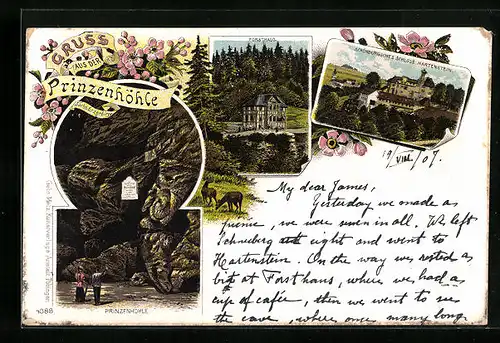 GRUSS
AUS DER
Prinzenhöhle
FORSTHAUS.
SCHÖNBURG'SCHES SCHLOSS HARTENSTEIN.
19/VIII 07.
My dear James,
Yesterday we made a
we were seven in all. We left
Schneeberg at eight and went to
Hartenstein. On the way we rested a
bit at Forsthaus, where we had a
cup of cafée, then we went to see
the cave, where once many long
PRINZENHÖHLE
4388